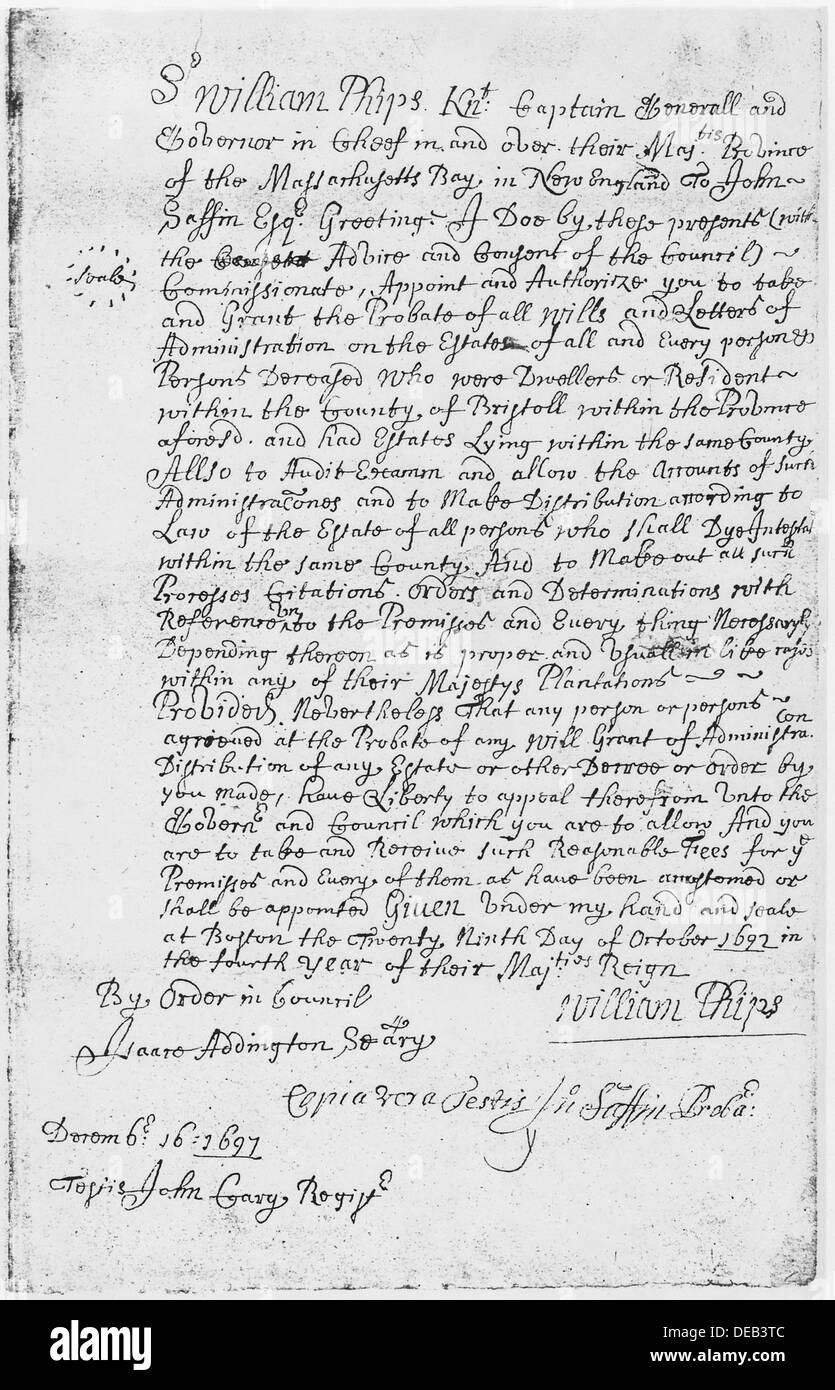 Sr William Phips. Knt: Captain Generall and
Governor in Cheef in and over their Majtis. Province
of the Massachusetts Bay in New England To John
Saffin Esqr. Greeting. I Doe by these presents (with
the Advice and Consent of the Council)
seale
Commissionate, Appoint and Authorize you to take
and Grant the Probate of all Wills and Letters of
Administration on the Estates of all and Every person or
Persons Deceased Who were Dwellers or Resident
within the County of Bristoll within the Province
aforesd. and had Estates Lying within the same County
Allso to Audit Eccamm and allow the Accounts of such
Administracones and to Make Distribution according to
Law of the Estate of all persons who shall Dye Intestat
within the same County. And to Make out all such
Processes Citations. Orders and Determinations with
Reference unto the Premisses and Every thing Necessaryly
Depending thereon as is proper and Usuall in like cases
within any of their Majestys Plantations
Provided. Nevertheless That any person or persons
agrieved at the Probate of any Will Grant of Administracon.
Distribution of any Estate or other Decree or order by
you made, have Liberty to appeal therefrom Unto the
Governr and Council which you are to allow And you
are to take and Receive such Reasonable Fees for ye
Premisses and Every of them as have been accostomed or
shall be appointed Given Under my hand and seale
at Boston the Twenty Ninth Day of October 1692 in
the fourth Year of their Majties Reign
By Order in Council
William Phips
Isaac Addington Secry
Copia vera Testis Jno Saffin Proba:
Decembr. 16: 1697
Testis John Cary Registr
alamy
Image ID: DEB3TC
www.alamy.com